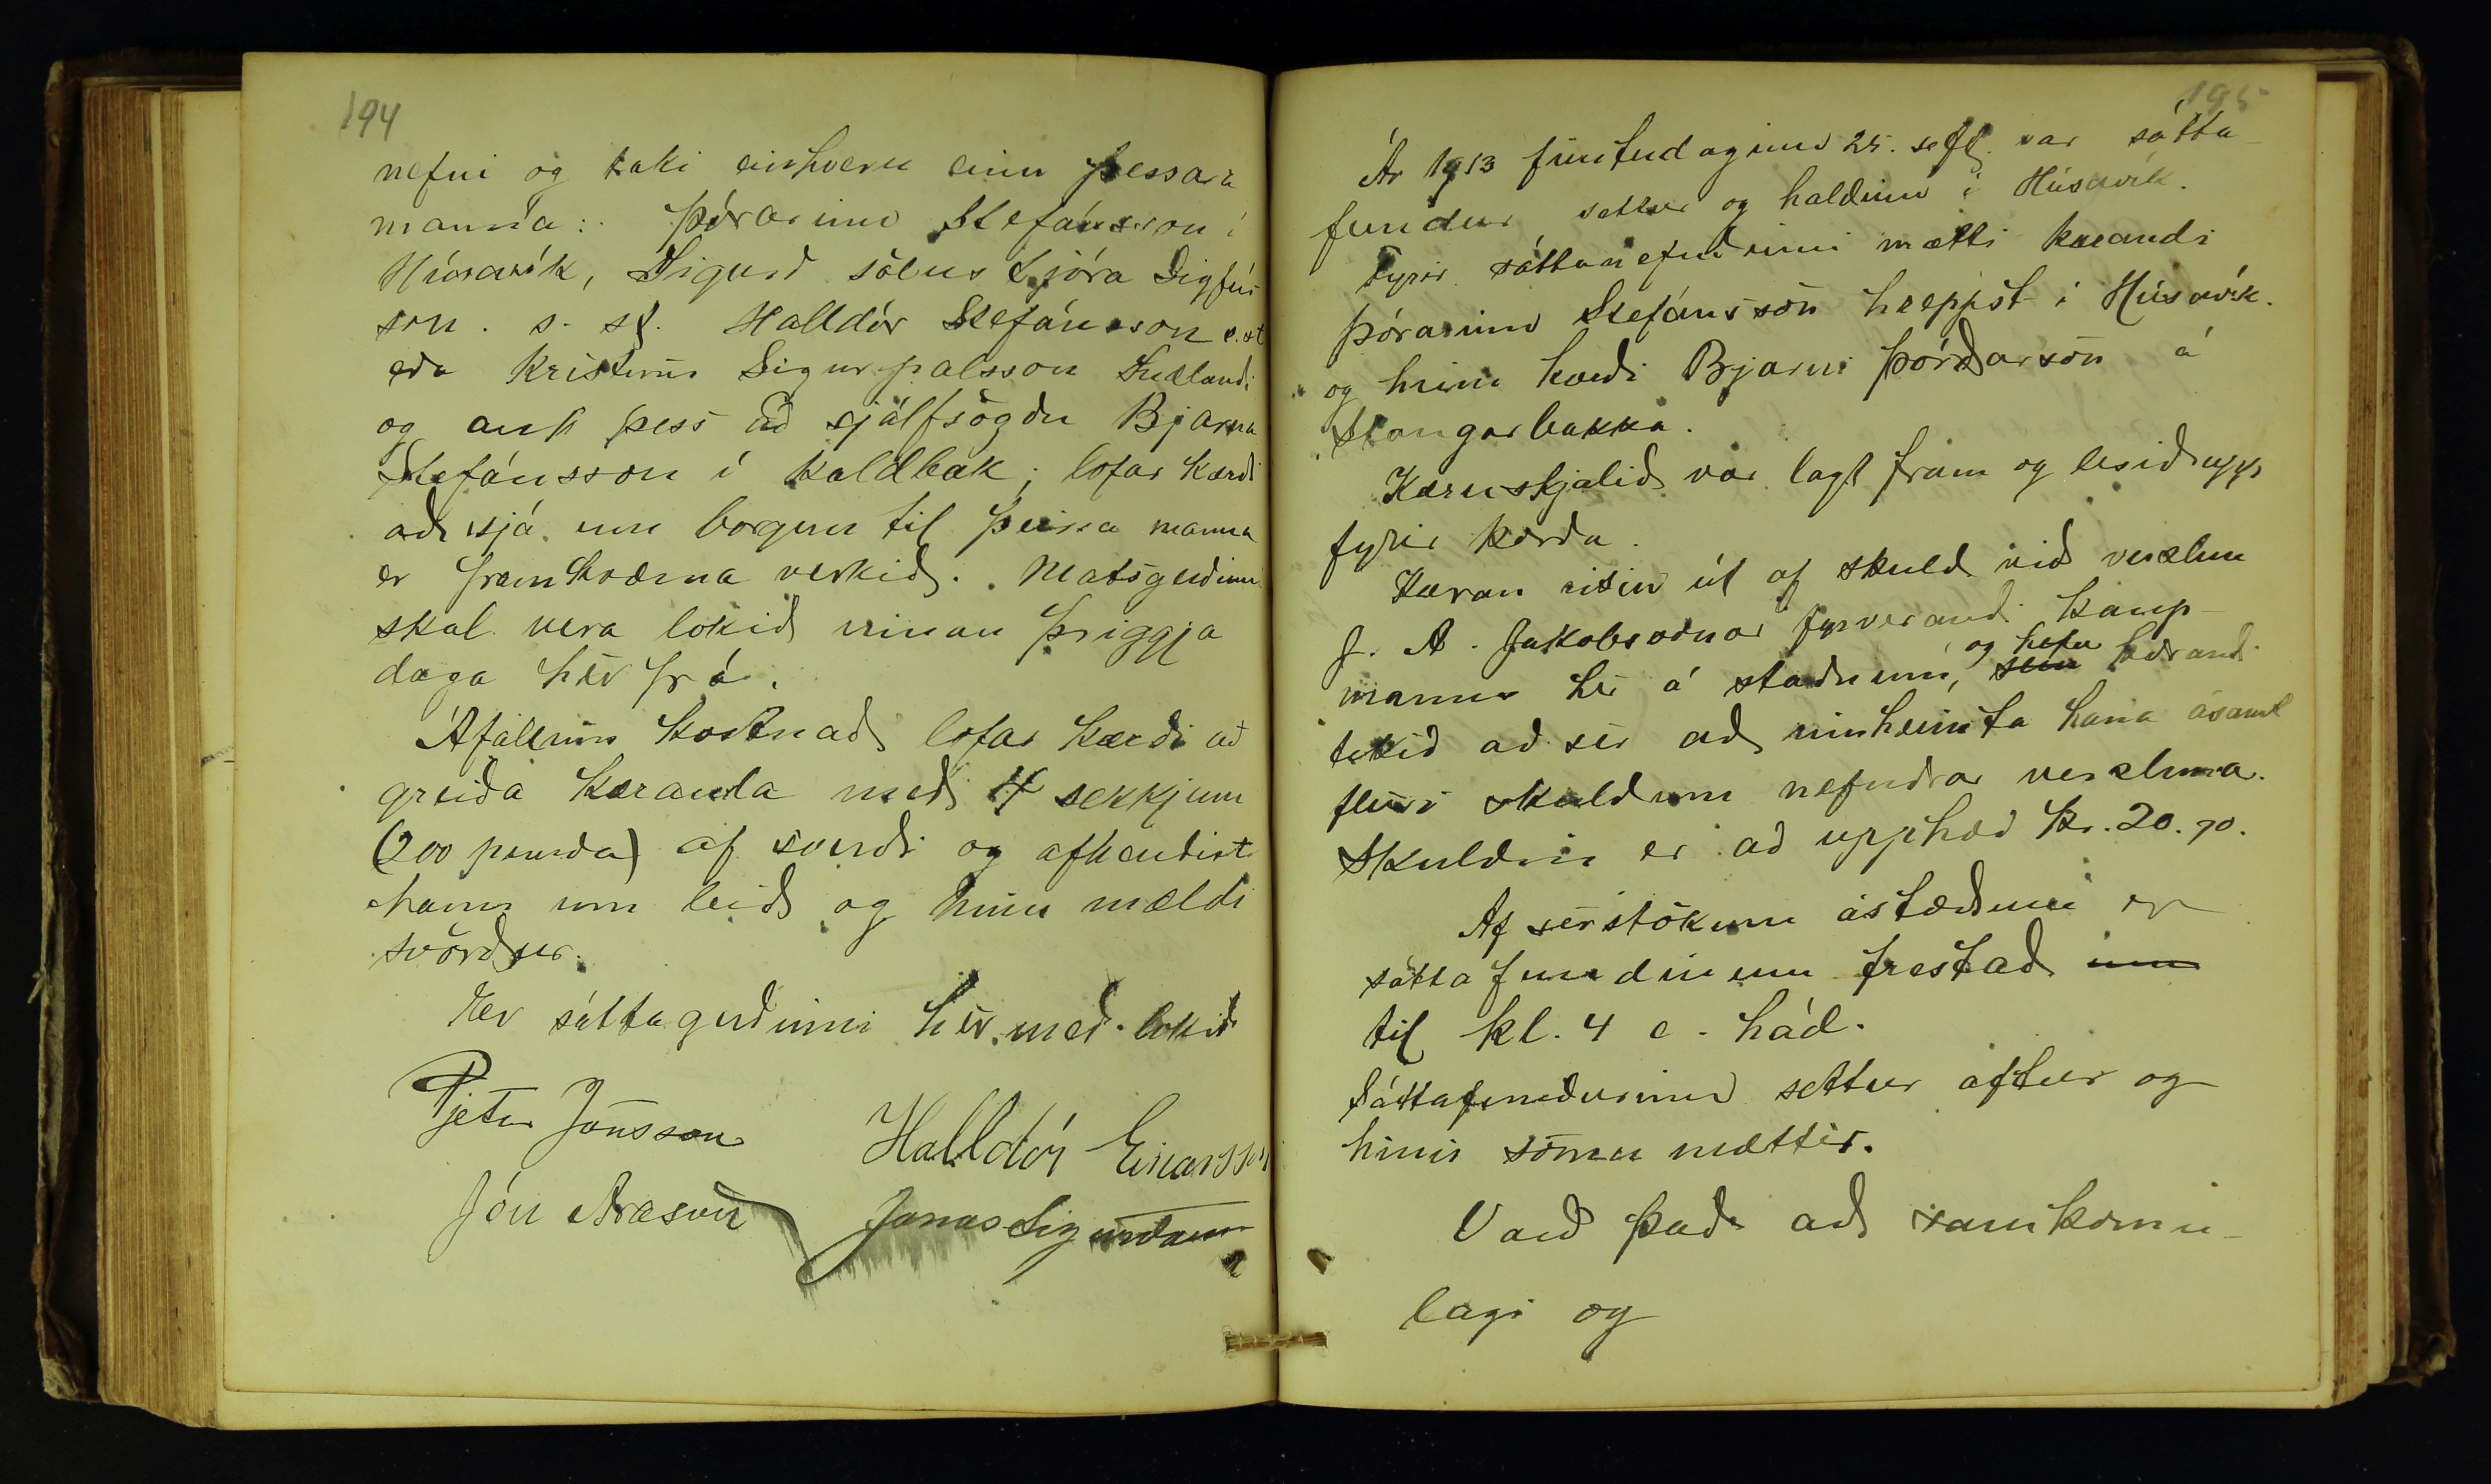 194
nefni og taki einhvern einn þessara
manna: Þórarinn Stefánsson í
Húsavík, Sigurð sölus tjóra Sigfús
son. s. st. Halldór Stefánsson s. st
eða Kristinn Sigurpálsson
og auk þess að sjálfsögðu Bjarna
Stefánsson í Kaldbak; lofar kærði
að sjá um borgun til þeirra manna
er framkvæma verkið. Matsgerðinni
skal vera lokið innan þriggja
daga hér frá.
Áfallinn kostnað lofar kærði að
greiða kæranda með 4 sekkjum
(200 punda) af sverði og afhendist
hann um leið og hinn mældi
svörður.
Er sáttagerðinni hér með lokið
Pjetur Jónsson
Halldór Einarsson
Jón Arason
Jonas Sigurdsson
195
Ár 1913 fimtudaginn 25. sept. var sátta-
fundur settur og haldinn í Húsavík.
Fyrir sáttanefndinni mætti kærandi
Þórarinn Stefánsson hreppst í Húsavík.
og hinn kærði Bjarni Þórðarson á
Stangarbakka.
Kæruskjalið var lagt fram og lesið upp
fyrir kærða.
Kæran risin út af skuld við verzlun
J. A. Jakobssonar fyrverandi kaup-
manns hér á staðnum, sem og hefur kærandi
tekið að sér að innheimta hana ásamt
fleiri skuldum nefndrar verzlunar.
Skuldin er að upphæð kr. 20.90.
Af sérstökum ástæðum er
sáttafundinum frestað um
til kl. 4 e. hád.
Sáttafundurinn settur aftur og
hinir sömu mættir.
Varð það að samkomu-
lagi og